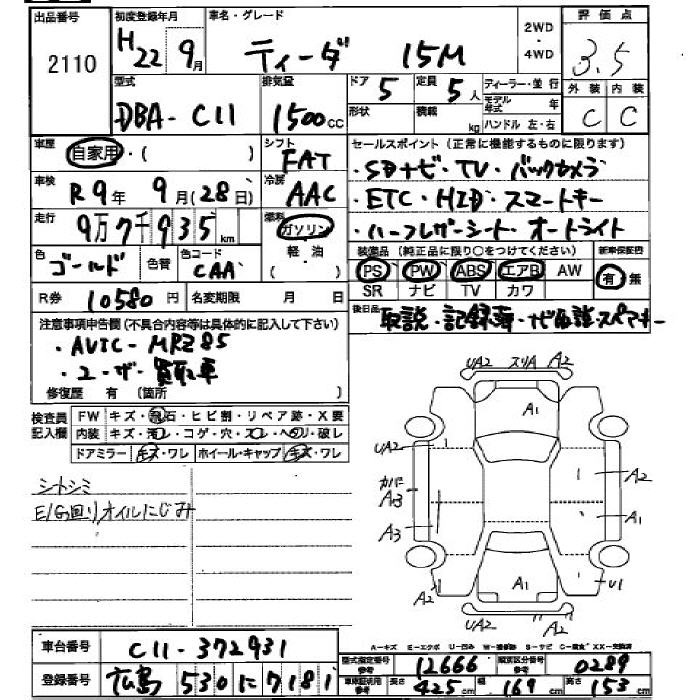 出品番号 初度登録年月 車名・グレード 評価点
2110 H22 9月 ティーダ 15M 2WD・4WD 3.5
型式 排気量 ドア 5 定員 5人 ディーラー・並行 外装 内装
DBA-C11 1500cc 形状 積載 kg モデル年式 年 ハンドル 左・右 C C
車歴 自家用・( ) シフト FAT セールスポイント(正常に機能するものに限ります)
・SDナビ・TV・バックカメラ
車検 R9年 9月(28日) 冷房 AAC ・ETC・HID・スマートキー
走行 9万7千935km 燃料 ガソリン ・ハーフレザーシート・オートライト
色 ゴールド 色替 色コード CAA 軽・油 ( ) 装備品(純正品に限り○をつけてください) 新車保証書
PS PW ABS エアB AW 有・無
R券 10580円 名変期限 月 日 SR ナビ TV カワ
注意事項申告欄(不具合内容等は具体的に記入して下さい) 後日品 取説・記録簿・ナビ取説・スペアキー
・AVIC-MRZ85
・ユーザー買取車
修復歴 有 (箇所 )
検査員記入欄 FW キズ・飛石・ヒビ割・リペア跡・X要
内装 キズ・汚レ・コゲ・穴・スレ・ヘタリ・破レ
ドアミラー キズ・ワレ ホイール・キャップ キズ・ワレ
シートシミ
E/G回りオイルにじみ
UA2 スリA A2
A1
UA2
カバーA3 A2
A3 A1
A2 A1 U1
UA2 A2
A-キズ E-エクボ U-凹み W-補修跡 S-サビ C-腐食 XX-交換済
車台番号 C11-372931
型式指定番号参考 12666 類別区分番号参考 0289
登録番号 広島 530 に 7181
車体証明用参考 長さ 425cm 幅 169cm 高さ 153cm